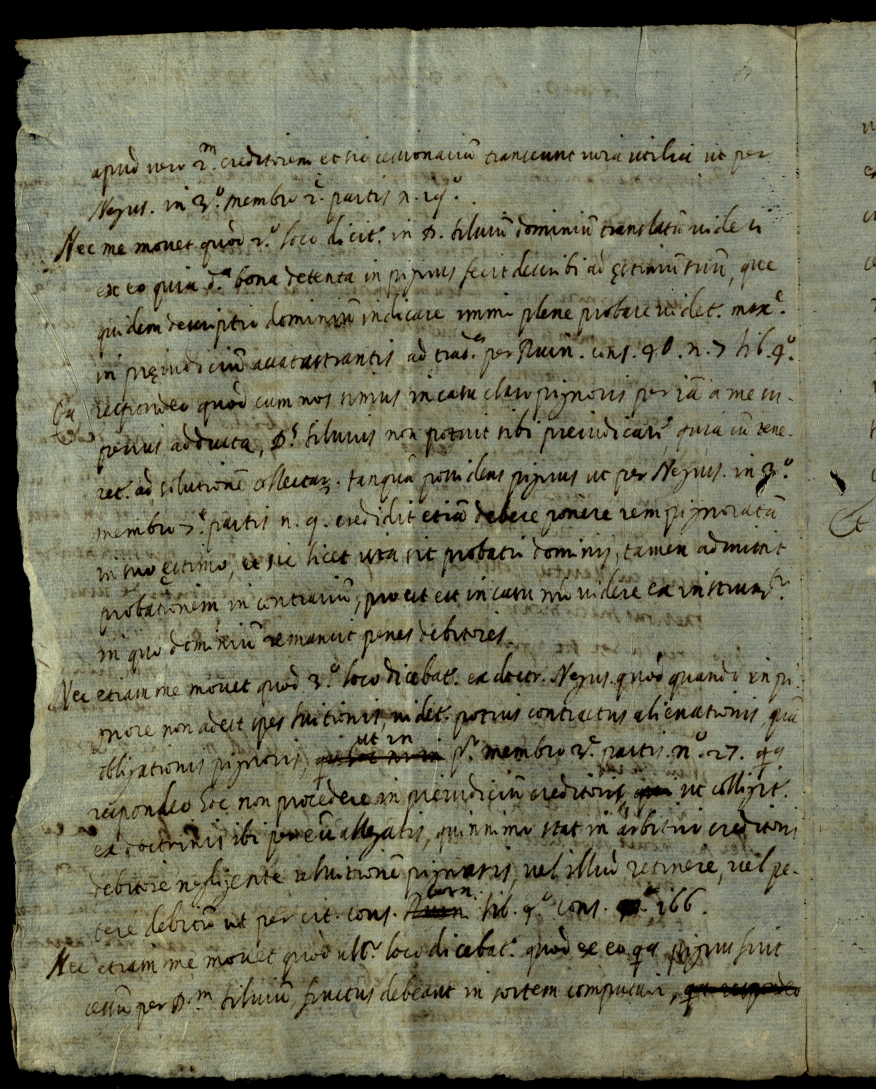 apud vero 2.m creditorem et sic cessionariũ transeunt iura utilia ut per
Negus. in 3.o membro 2.e partis n. 19.o
Nec me movet quòd 2.o loco dicit.r in D. Siluiũ dominiũ translatũ uideri
ex eo quia d.a bona detenta in pignus fecit describi ad ęstimũ suũ, que
quidem descriptio dominiũ indicare immo plene probare videt.r max.e
in pręiudiciũ accatastrantis ad trad.a per Ruin. cons. 90. n. 7 lib. 4.o
respondeo quòd cum nos simus in casu claro pignoris per iã a me su-
perius adducta, D.s Siluius non potuit sibi preiudicare, quia cũ tene-
ret.r ad solutionẽ collectarũ tanquã possidens pignus ut per Negus. in 3.o
membro 7.e partis n. 9. credidit etiã debere ponere rem pignoratã
in suo ęstimo, et sic licet ista sit probatio dominij, tamen admittit
probationem in contrariũ, prout est in casu nrõ videre ex instrum.to
in quo dominiũ remansit penes debitores.
Nec etiam me movet quòd 3.o loco dicebat.r ex doctr. Negus. quòd quando in pi-
gnore non adest spes luitionis, videt.r potius contractus alienationis quã
obligationis pignoris, ut in p.o membro 2.e partis n.o 27. qa
respondeo hoc non procedere in preiudiciũ creditoris, ut colligit.r
ex doctrinis ibi per eũ allegatis, quinimmo stat in arbitrio creditoris
debitore negligente reluitionẽ pignoris, vel illud retinere, vel pe-
tere debitũ ut per cit. cons. born. lib. 4.o cons. 166.
Nec etiam me movet quòd ult.o loco dicebat.r quòd ex eo qa pignus fuit
cessũ per D.m Siluiũ, fructus debeant in sortem computari,